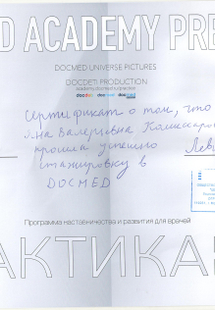 D ACADEMY PRE
DOCMED UNIVERSE PICTURES
DOCDETI PRODUCTION
academy.docmed.ru/practice
Сертификат о том, что
Яна Валерьевна Комиссаро
прошла успешно
стажировку в
DOCMED
Программа наставничества и развития для врачей
АКТИКА